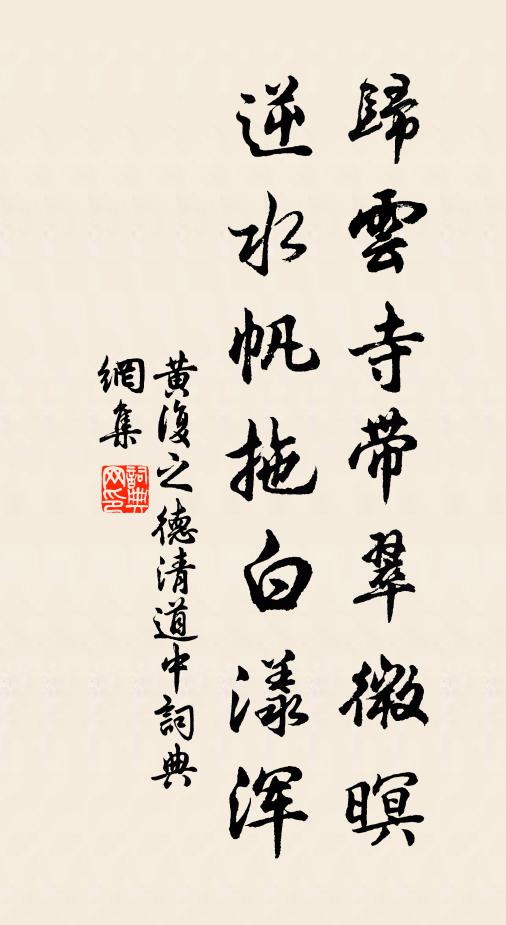 歸雲寺帶翠微暝
逆水帆拖白漾浑
黃復之德清道中詞典
網集
詞典
网印